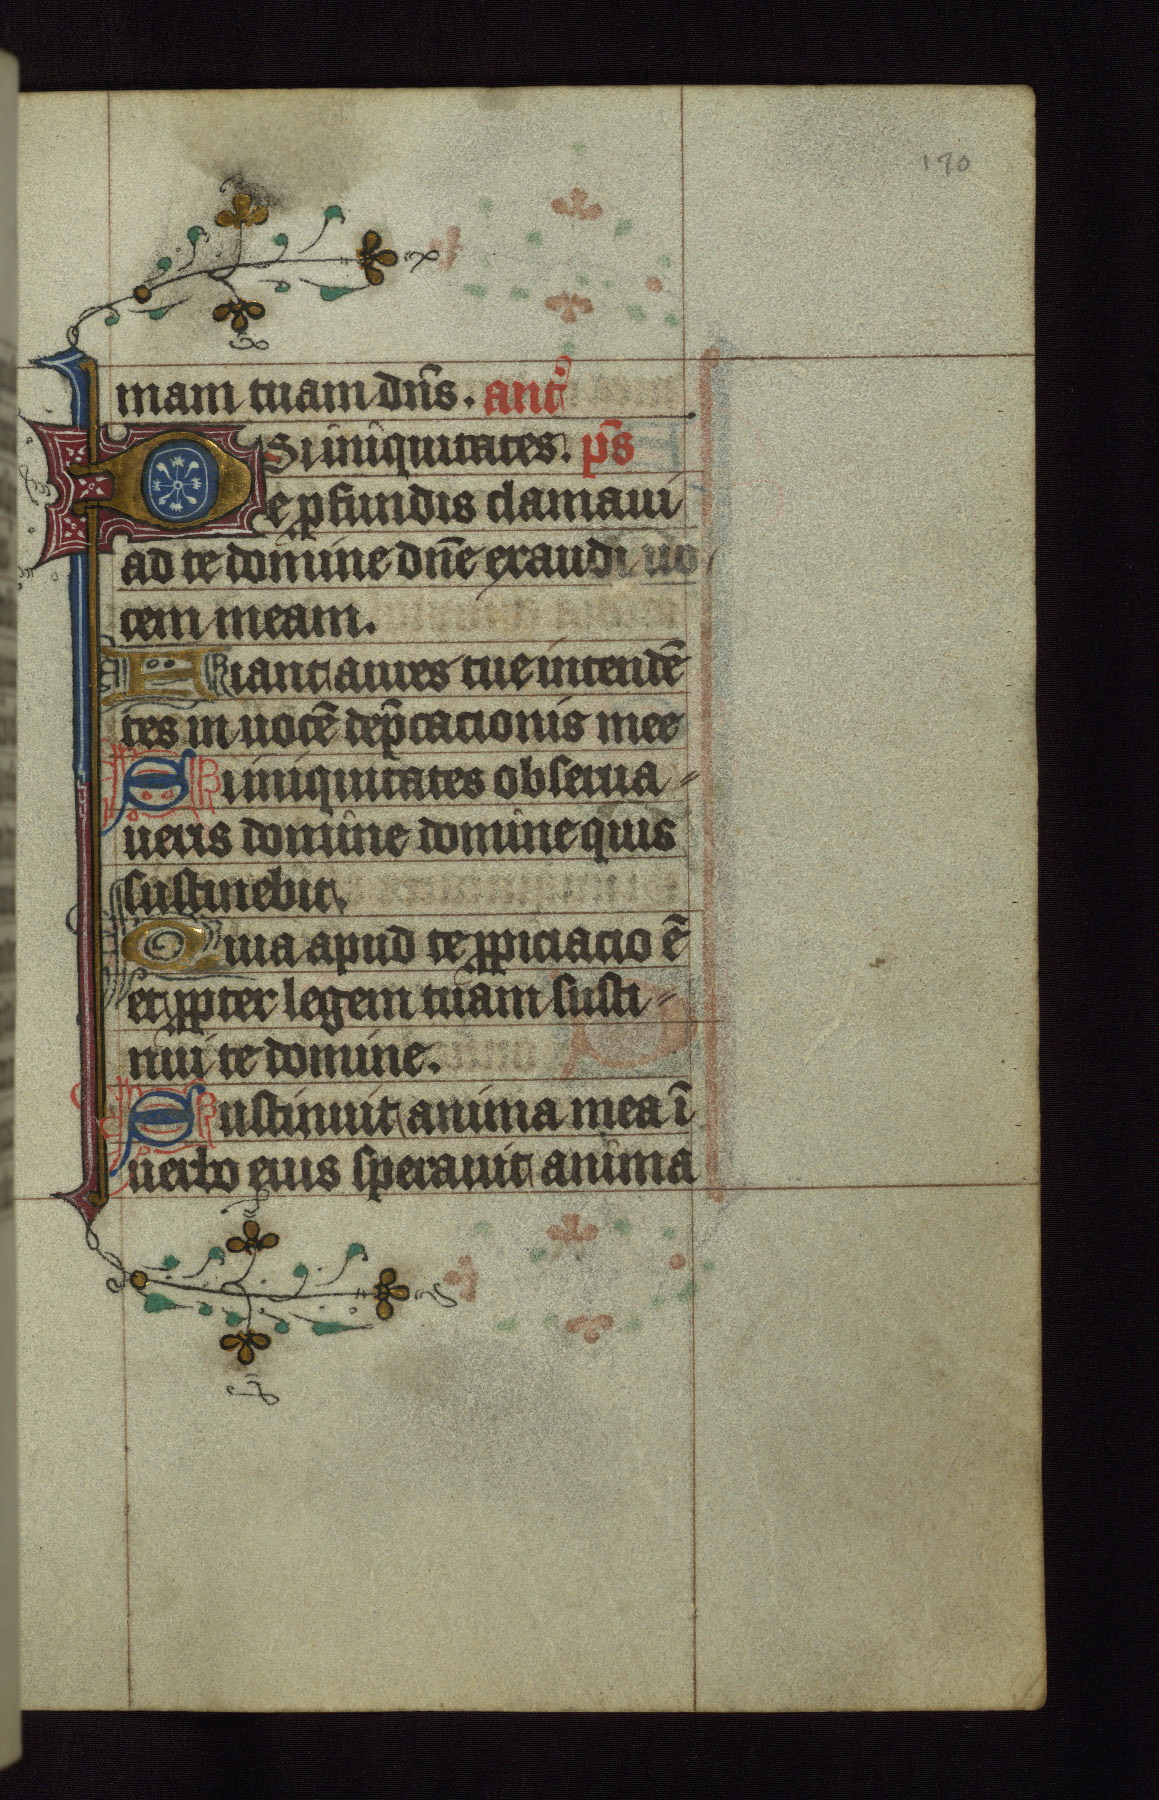 170
mam tuam dn̄s. ant̄
Si iniquitates. p̄s
De ꝓfundis clamaui
ad te domine dn̄e exaudi uo
cem meam.
Fiant aures tue intendē
tes in uocē dep̄cacionis mee
Si iniquitates obserua
ueris domine domine quis
sustinebit.
Quia apud te ꝓpiciacio ē
et ꝓpter legem tuam susti
nui te domine.
Sustinuit anima mea ī
uerbo eius sperauit anima